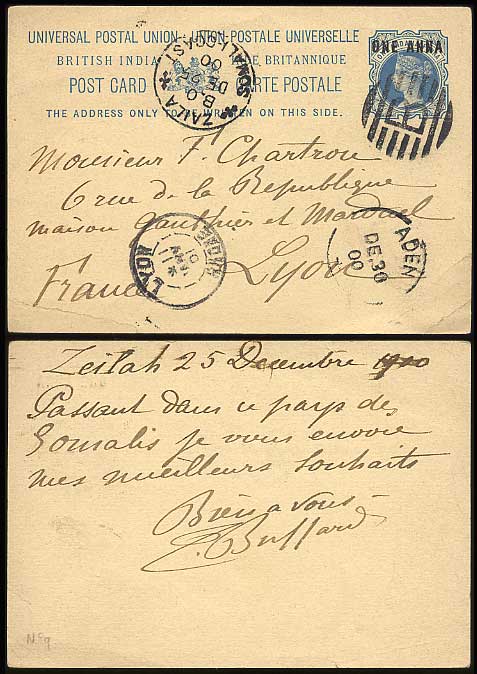 UNIVERSAL POSTAL UNION · UNION POSTALE UNIVERSELLE
BRITISH INDIA DE BRITANNIQUE
POST CARD CARTE POSTALE
THE ADDRESS ONLY TO BE WRITTEN ON THIS SIDE.
ONE ANNA
ZAILA B.O. SOMALI COAST
DE 00
L
Monsieur F. Chartron
6 rue de la Republique
maison Gauthier et
Lyon
France
LYON RHONE
11
01
ADEN
DE.30
00
Zeilah 25 Decembre 1900
Passant dans ce pays des
Somalis je vous envoie
mes meilleurs souhaits
Bien a vous
Buffard
No 9